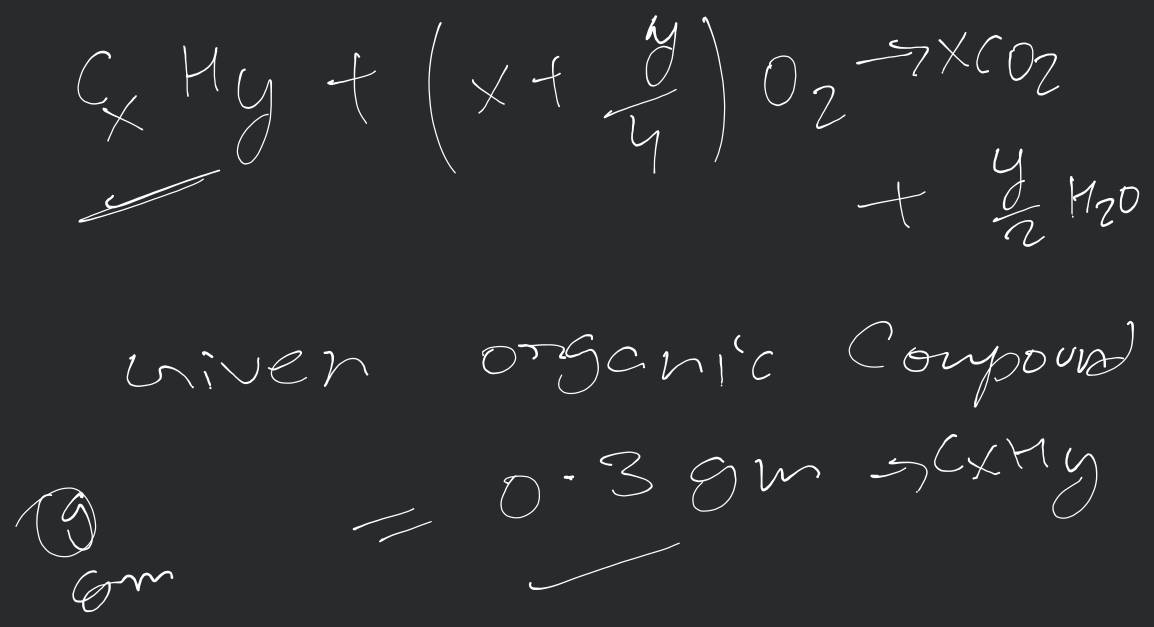 CxHy + (x + y/4) O2 → XCO2
+ y/2 H2O
Given organic Compound
= 0.3 gm → CxHy
g
gm